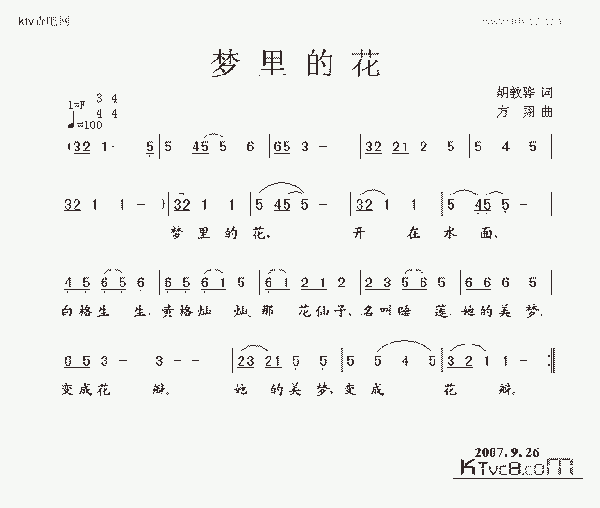 梦里的花
胡敦骅 词
方 翔 曲
1=F 3 4
4 4
♩=100
(32 1· 5 | 5 45 5 6 | 65 3 - | 32 21 2 5 | 5 4 5 |
32 1 1 - ) | 32 1 1 | 5 45 5 - | 32 1 1 | 5 45 5 - |
梦里的花、 开 在水面、
4 5 6 5 6 | 6 6 5 6 1 5 | 6 1 1 2 1 2 | 2 3 5 6 5 | 6 6 6 1 2 |
白格生 生、黄格灿 灿、那 花仙子、名叫睡 莲、她的美梦、
6 5 3 - | 3 - - | 23 21 5 5 | 5 5 4 5 | 3 2 1 1 - :|
变成花 瓣。 她 的美梦、变成 花 瓣。
2007.9.26
KTvc8.com